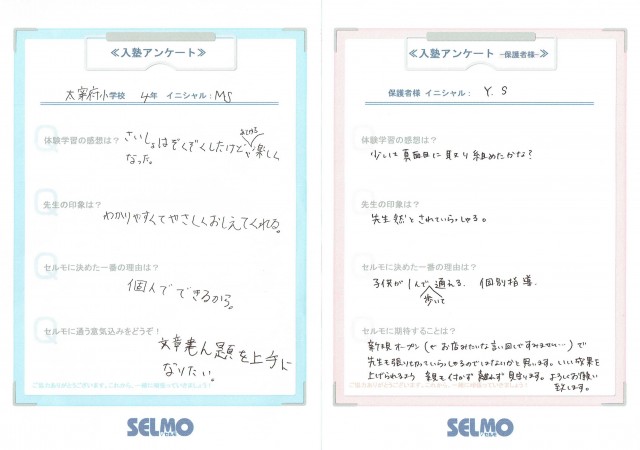 ≪入塾アンケート≫
太宰府小学校 4年 イニシャル：MS
体験学習の感想は？
さいしょはぞくぞくしたけど楽しく
なった。
先生の印象は？
わかりやすくてやさしくおしえてくれる。
セルモに決めた一番の理由は？
個人でできるから。
セルモに通う意気込みをどうぞ！
文章もん題を上手に
なりたい。
ご協力ありがとうございます。これから、一緒に頑張っていきましょう！
SELMO
セルモ
≪入塾アンケート -保護者様-≫
保護者様 イニシャル： Y. S
体験学習の感想は？
少しは真面目に取り組めたかな？
先生の印象は？
先生然とされていらっしゃる。
セルモに決めた一番の理由は？
子供が1人で通れる. 個別指導.
歩いて
セルモに期待することは？
新規オープン(←お店みたいな言い回しですみません…)で
先生も張り切っていらっしゃるのではないかと思います。いい成果を
上げられるよう 親も付かず離れず見守ります。よろしくお願い
致します。
ご協力ありがとうございます。これから、一緒に頑張っていきましょう！
SELMO
セルモ